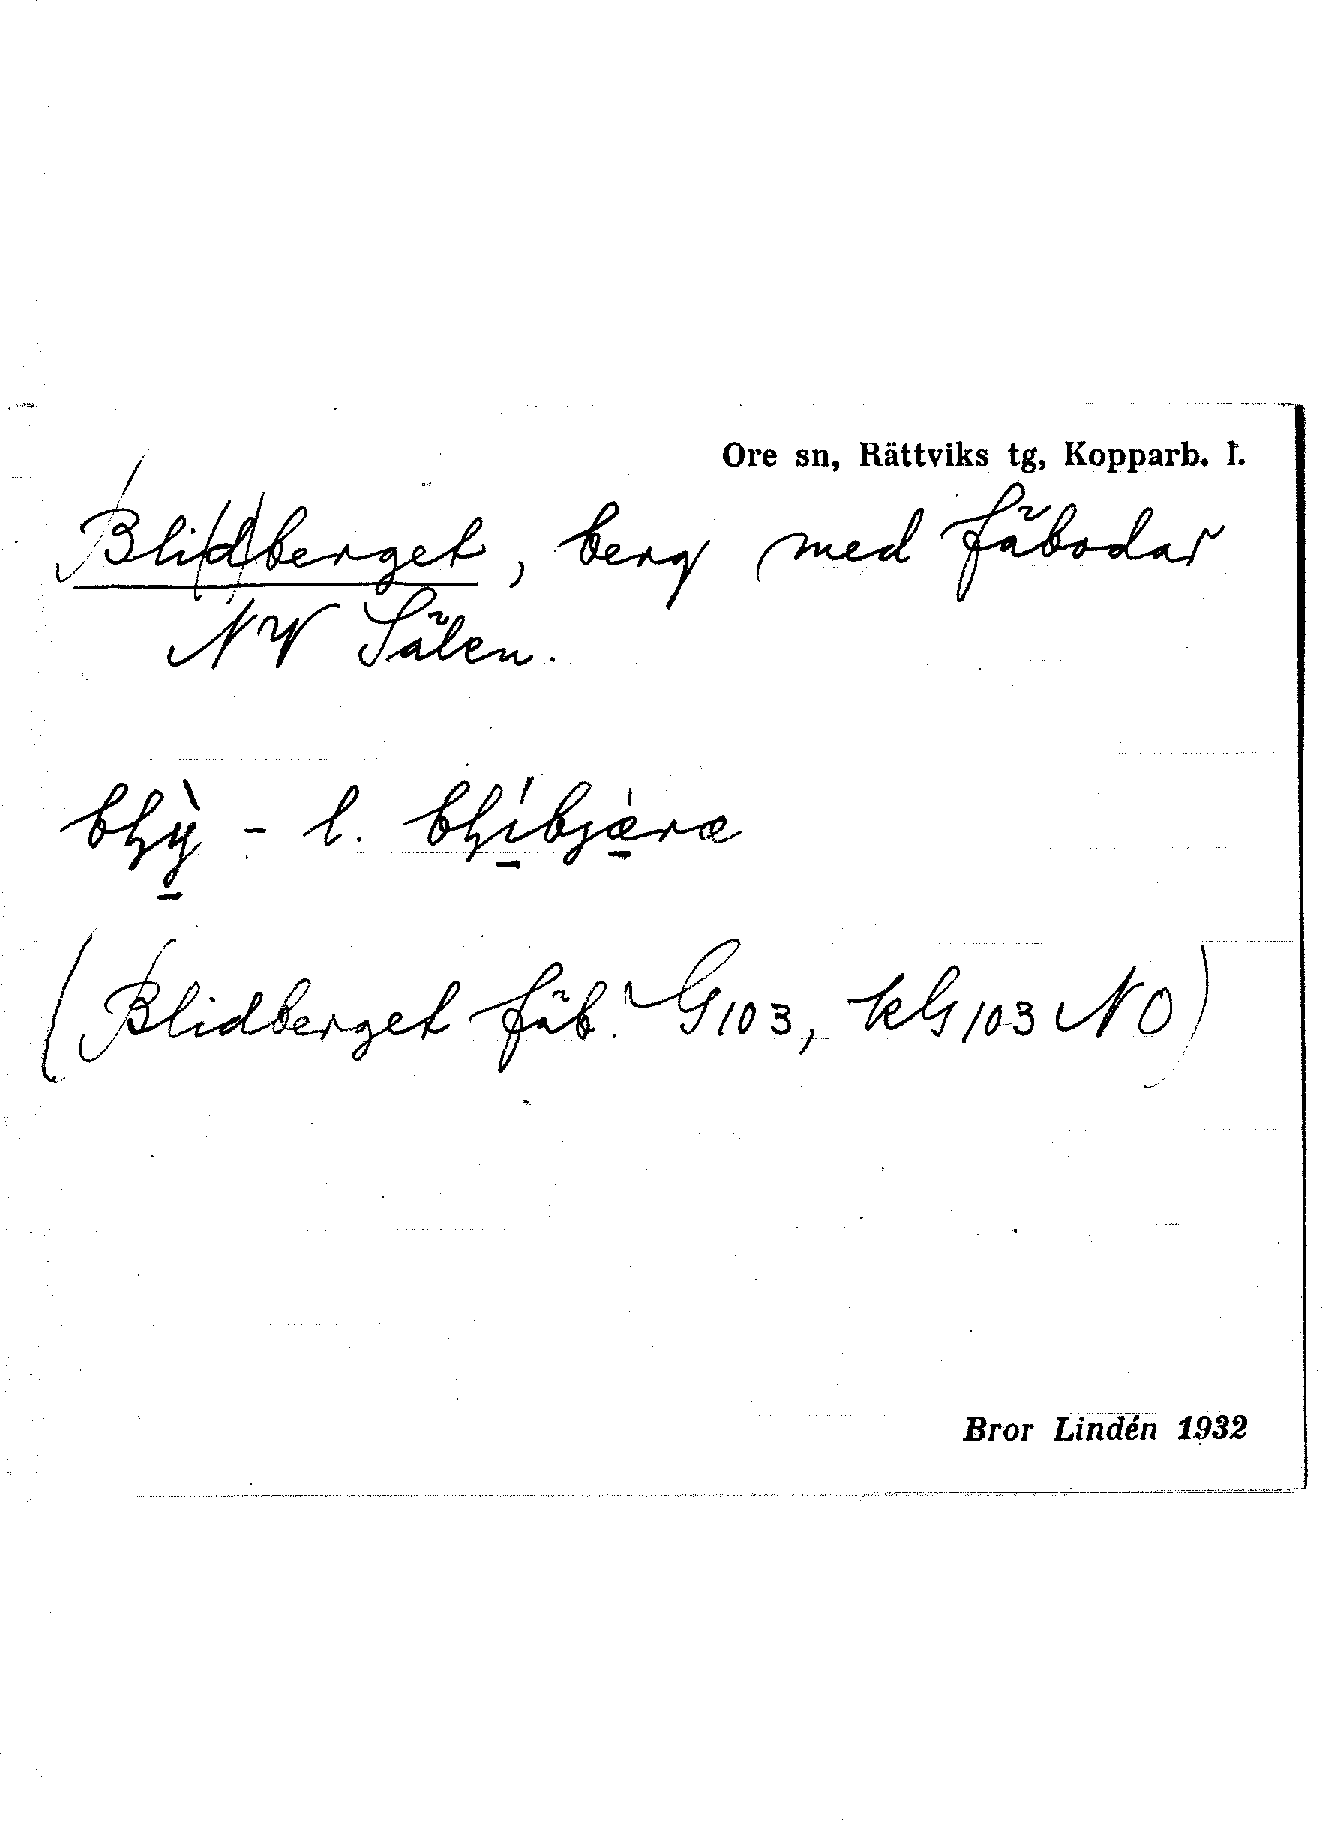 Ore sn, Rättviks tg, Kopparb. l.
Bli(d)berget, berg med fäbodar
NV Sälen.
- l.
(Blidberget fäb. G103, kG103 NO)
Bror Lindén 1932